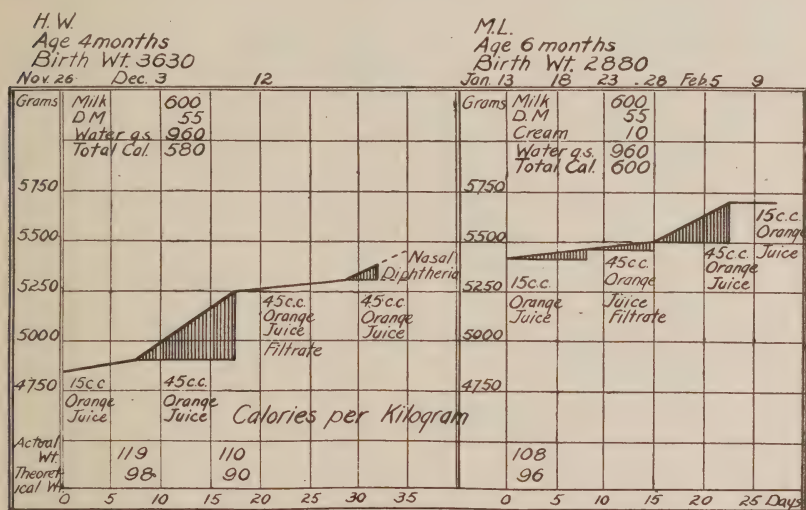 H. W.
Age 4 months
Birth Wt. 3630
Nov. 26 Dec. 3 12
Grams
Milk 600
D M 55
Water q.s. 960
Total Cal. 580
5750
5500
5250
5000
4750
Nasal
Diphtheria
45 c.c.
Orange
Juice
Filtrate
45 c.c.
Orange
Juice
15 c.c
Orange
Juice
45 c.c.
Orange
Juice
Calories per Kilogram
Actual
Wt. 119 110
Theoret-
ical Wt. 98 90
0 5 10 15 20 25 30 35
M.L.
Age 6 months
Birth Wt. 2880
Jan. 13 18 23 28 Feb. 5 9
Grams
Milk 600
D.M 55
Cream 10
Water q.s. 960
Total Cal. 600
5750
5500
5250
5000
4750
15 c.c.
Orange
Juice
45 c.c.
Orange
Juice
Filtrate
45 c.c.
Orange
Juice
15 c.c.
Orange
Juice
108
96
0 5 10 15 20 25 Days